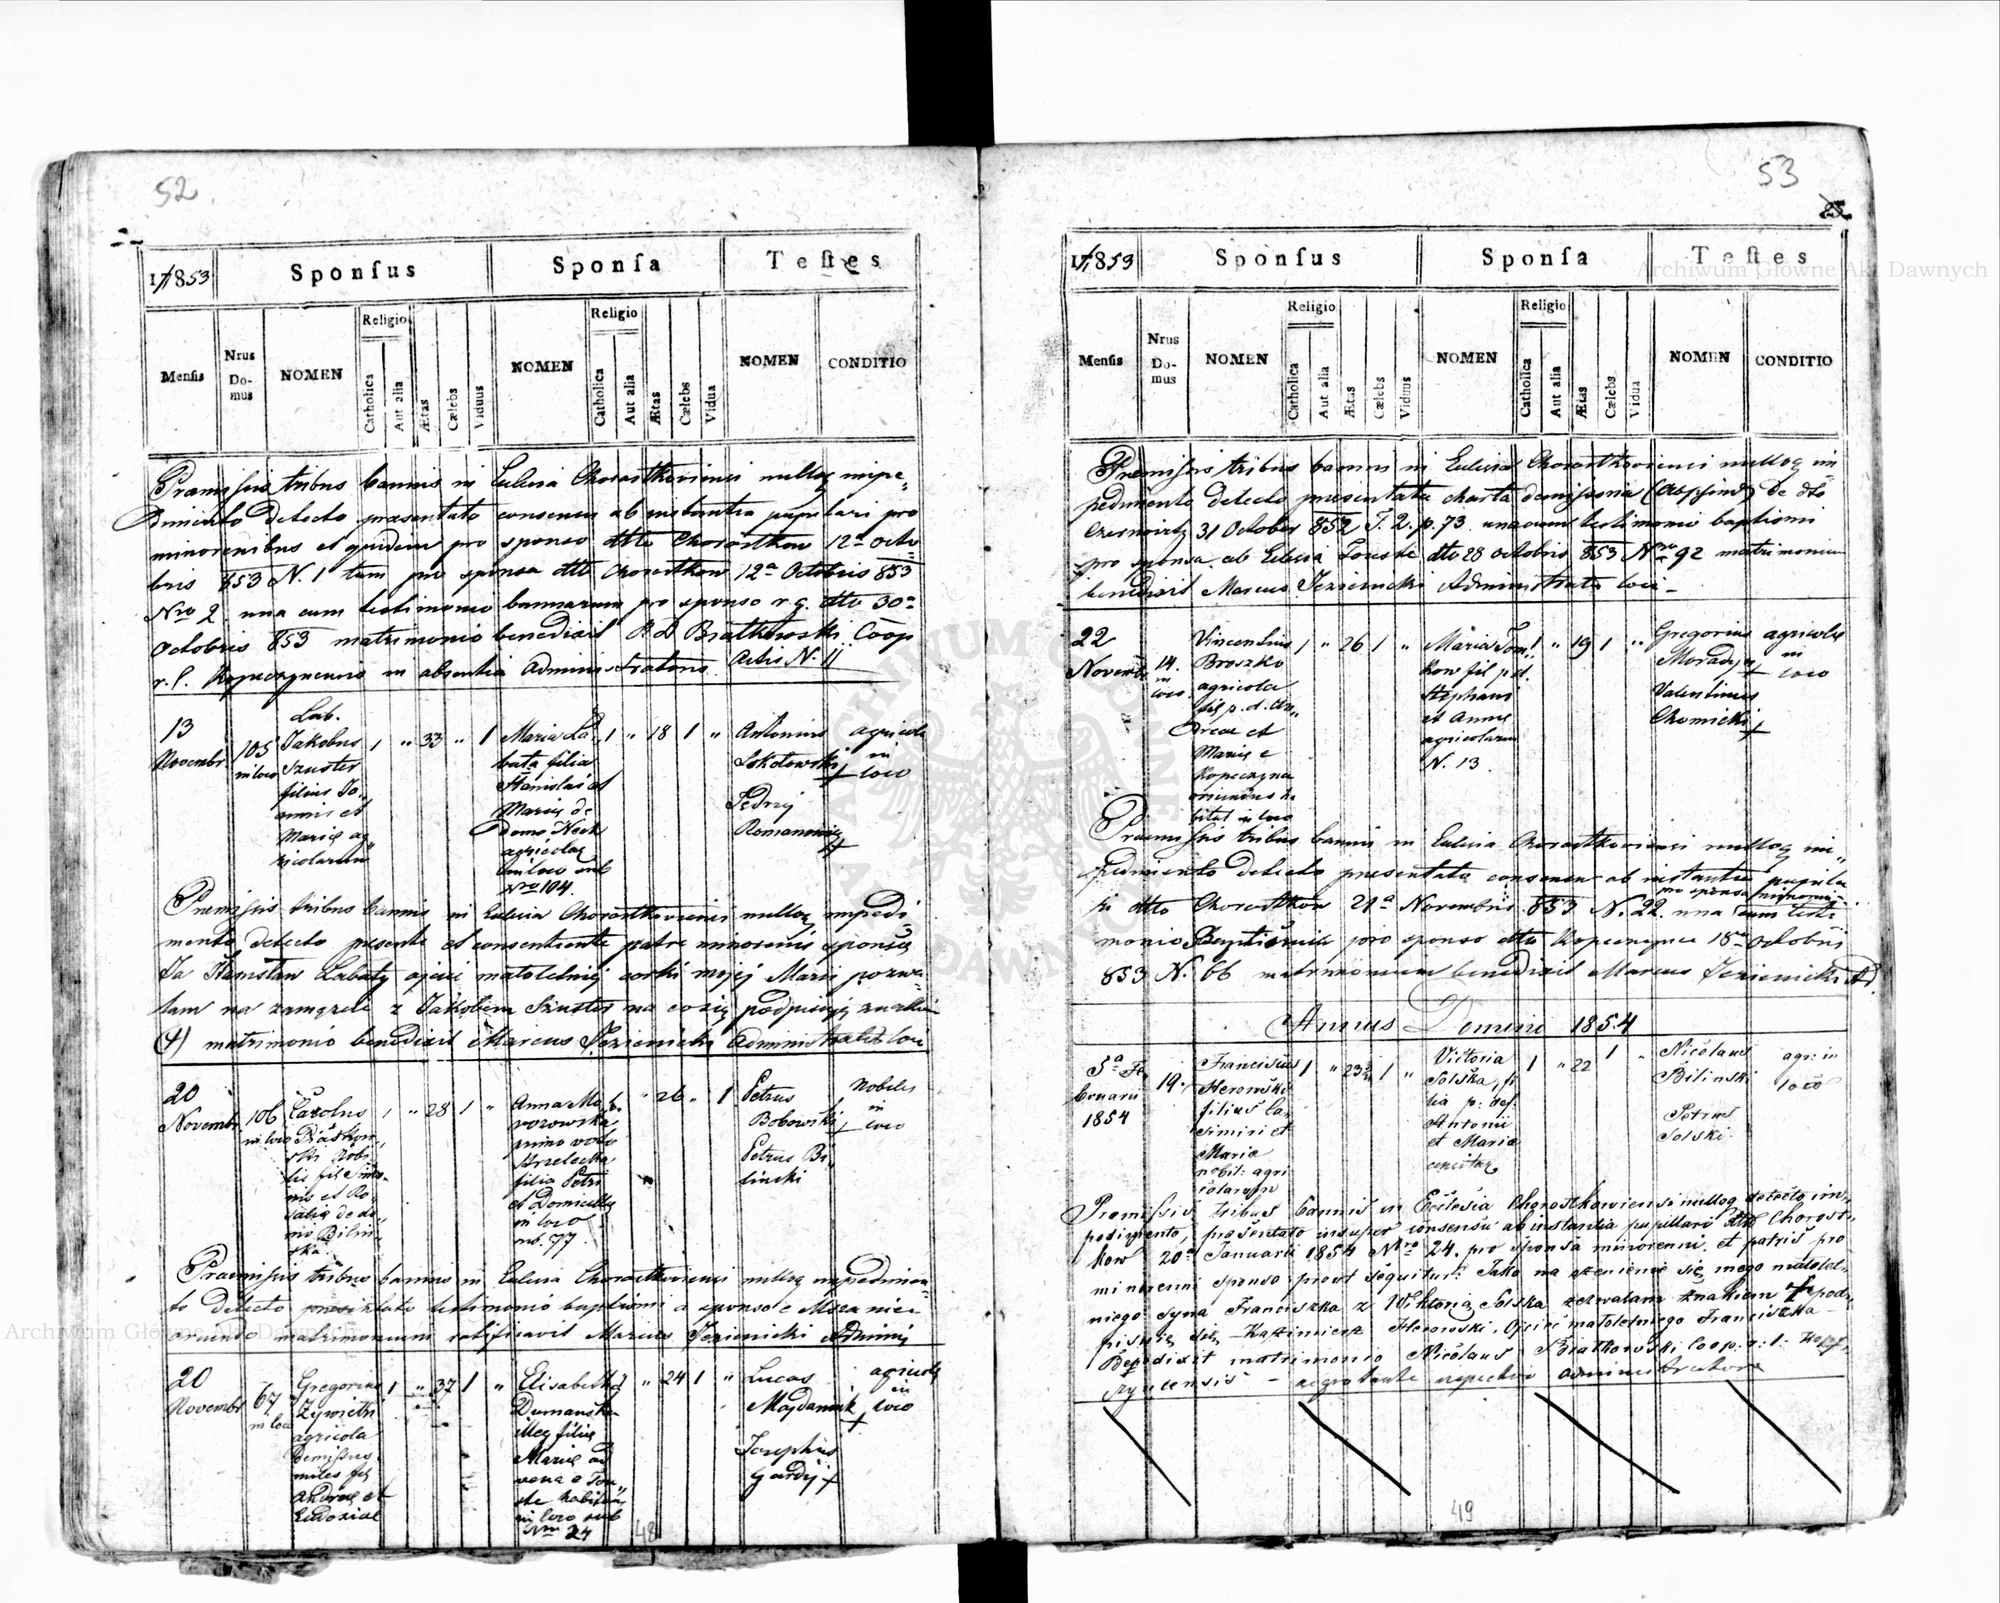 52
1853
Sponſus
Sponſa
Teſtes
Menſis
Nrus Do-mus
NOMEN
Religio
Catholica
Aut alia
Ætas
Cælebs
Viduus
NOMEN
Religio
Catholica
Aut alia
Ætas
Cælebs
Vidua
NOMEN
CONDITIO
Præmissis tribus bannis in Ecclesia Chorostkoviensi nulloq impe-
dimento detecto præsentato consensu ab instantia pupilari pro
minorenibus et quidem pro sponso dtto Chorostkow 12a Octo-
bris 853 N. 1 tum pro sponsa dtto Chorostkow 12a Octobris 853
Nro 2 una cum testimonio bannarum pro sponso r. g. dtto 30a
Octobris 853 matrimonio benedixit Białkowski Coop
r. l. Kopeczyncensis in absentia Administratoris Actis N. 11
13
Novembr
105
in loco
Lab.
Jakobus
Szuster
filius Jo-
annis et
Mariæ ag
ricolarum
1 " 33 " 1
Maria La-
bata filia
Stanislai et
Mariæ de
domo Heck
agricolæ
in loco sub
Nro 104.
1 " 18 1 "
Antonius
Sokołowski +
Jędrzij
Romanowicz
+
agricolæ
in
loco
Premissis tribus bannis in Ecclesia Chorostkoviensi nulloq impedi
mento detecto presente et consentiente patre minorenis sponsæ
Ja Stanisław Labaty ojciec małoletniej corki mojej Marii pozwa-
lam na zamęzcie z Jakobem Szuster na co się podpisuję znakiem
(+) matrimonio benedixit Marcus Jezienicki Administrator loci
20
Novembr
106
in loco
Carolus
nobi-
lis fil Simo-
nis et Ro-
salia de do-
mo Bilin-
ska
1 " 28 1 "
Anna
primo voto
Strzelecka
filia Petri
et Domicellæ
in loco
nb. 77.
" 26 " 1
Petrus
Bobowski +
Petrus Bi-
linski
nobiles
in
loco
Præmissis tribus bannis in Ecclesia Chorostkoviensi nulloq impedimen-
to detecto presentato testimonio baptismi a sponso e
oriundo matrimonium ratificavit Marcus Jezienicki Adminis
20
Novembr
67
in loco
Gregorius
agricola
demissus
miles fil
Andreæ et
Eudoxiae
1 " 37 1 "
Elisabetha
Dumanska
illeg filia
Mariæ ad
vena e Tou-
ste habitans
in loco sub
Nro 24
" 24 1 "
Lucas
Majdaniuk
+
Josephus
Gardij +
agricolæ
in
loco
48
53
1853
Sponſus
Sponſa
Teſtes
Menſis
Nrus Do-mus
NOMEN
Religio
Catholica
Aut alia
Ætas
Cælebs
Viduus
NOMEN
Religio
Catholica
Aut alia
Ætas
Cælebs
Vidua
NOMEN
CONDITIO
Præmissis tribus bannis in Ecclesia Chorostkoviensi nulloq im
pedimento detecto presentata charta demissoria (Abschied) de dto
31 October 852 J. 2. p. 73 una cum testimonio baptismi
pro sponsa ab Ecclesia Touste dtto 28 octobris 853 Nro 92 matrimonium
benedixit Marcus Jezienicki Administrator loci -
22
Novembr
14.
in
loco
Vincentius
Broszko
agricola
fil p. d. An-
dreæ et
Mariæ e
Kopeczynce
oriundus ha
bitat in loco
1 " 26 1 "
Maria Tom-
kow fil p d.
Stephani
et Annæ
agricolarum
N. 13
1 " 19 1 "
Gregorius
Moradyn
+
Valentinus
Chomicki
+
agricolæ
in
loco
Præmissis tribus bannis in Ecclesia Chorostkoviensi nulloq im-
pedimento detecto presentata consensu ab instantia pupila
ri dtto Chorostkow 21a Novembris 853 N. 22. pro sponsa minoreni una cum testi
monio Baptismali pro sponso dtto Kopeczynce 18a octobris
853 N. 66 matrimonium benedixit Marcus Jezienicki Ad.
Annus Domini 1854
5a Fe
bruarii
1854
19.
Franciscus
Herowski
filius Ca-
simiri et
Maria
nobil: agri
colarum
1 " 23 1 "
Victoria
Solska, fi
lia p: def.
Antonii
et Maria
1 " 22 1 "
Nicolaus
Bilinski
Petrus
Solski.
agr: in
loco
Premissis tribus bannis in Ecclesia Chorostkowiensi nulloq detecto im-
pedimento, præsentato insuper consensu ab instantia pupillari dtto Chorost-
kow 20a Januarii 1854 Nro 24. pro sponsa minorenni, et patris pro
minorenni sponso prout sequitur: Jako na ozenienie się mego małolet-
niego syna Franciszka z Wiktorią Solską zezwalam znakiem + pod-
pisuię się - Kazimierz Herowski, Ojciec małoletniego Franciszka -
Benedixit matrimonio Nicolaus Białkowski Coop. r. l. Kope-
czyncensis - aegrotante Administratore
49
Archiwum Główne Akt Dawnych
Archiwum Główne Akt Dawnych
ARCHIWUM GŁÓWNE AKT DAWNYCH